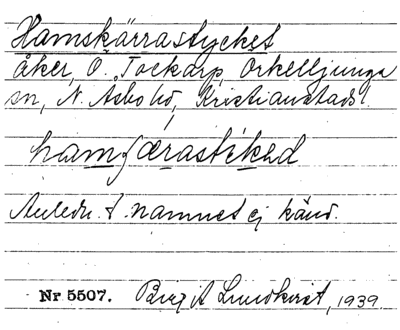 Hamskärrastycket
åker, Ö. Tockarp, Örkelljunga
sn, N. Åsbo hd, Kristianstads l.
Anledn. t. namnet ej känd.
Nr 5507. Birg. A Lundkvist, 1939